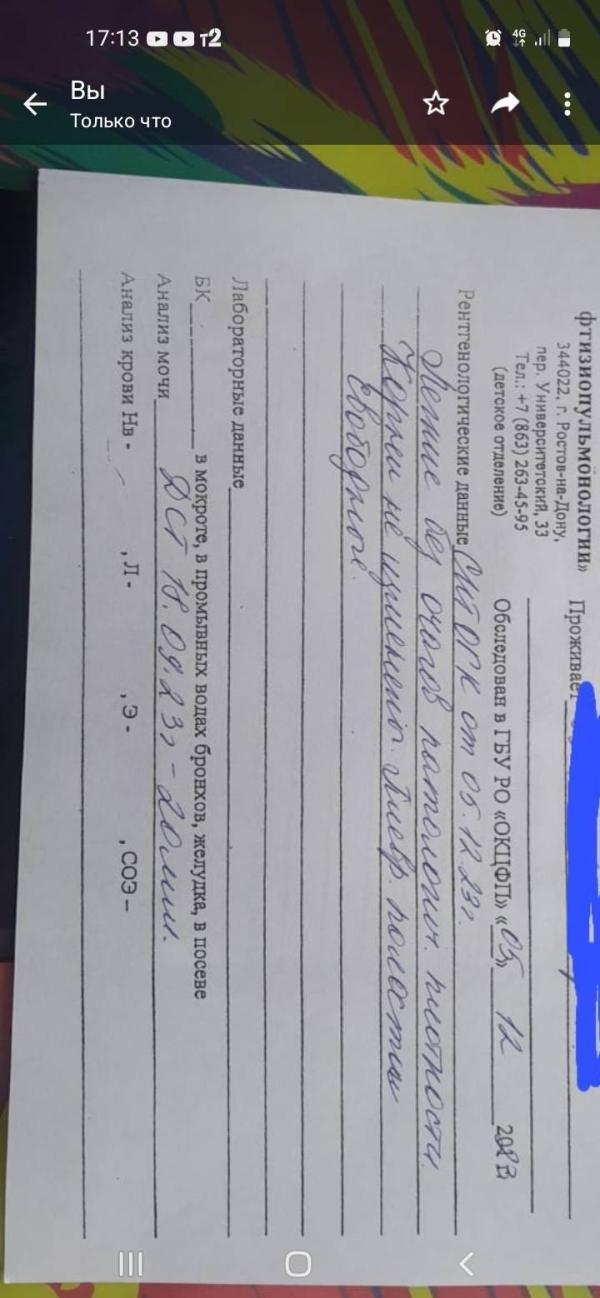 17:13 т2 4G
Вы
Только что
фтизиопульмонологии»
344022, г. Ростов-на-Дону,
пер. Университетский, 33
Тел.: +7 (863) 263-45-95
(детское отделение)
Проживает
Обследован в ГБУ РО «ОКЦФП» «05» 12 2023
Рентгенологические данные ОГК от 05.12.23г.
Легкие без очагов патологич. плотности.
Корни не изменены. Плевр. полости
свободные.
Лабораторные данные
БК в мокроте, в промывных водах бронхов, желудка, в посеве
Анализ мочи ДСТ 18.09.23г – 20мм.
Анализ крови Нв - , Л - , Э - , СОЭ –